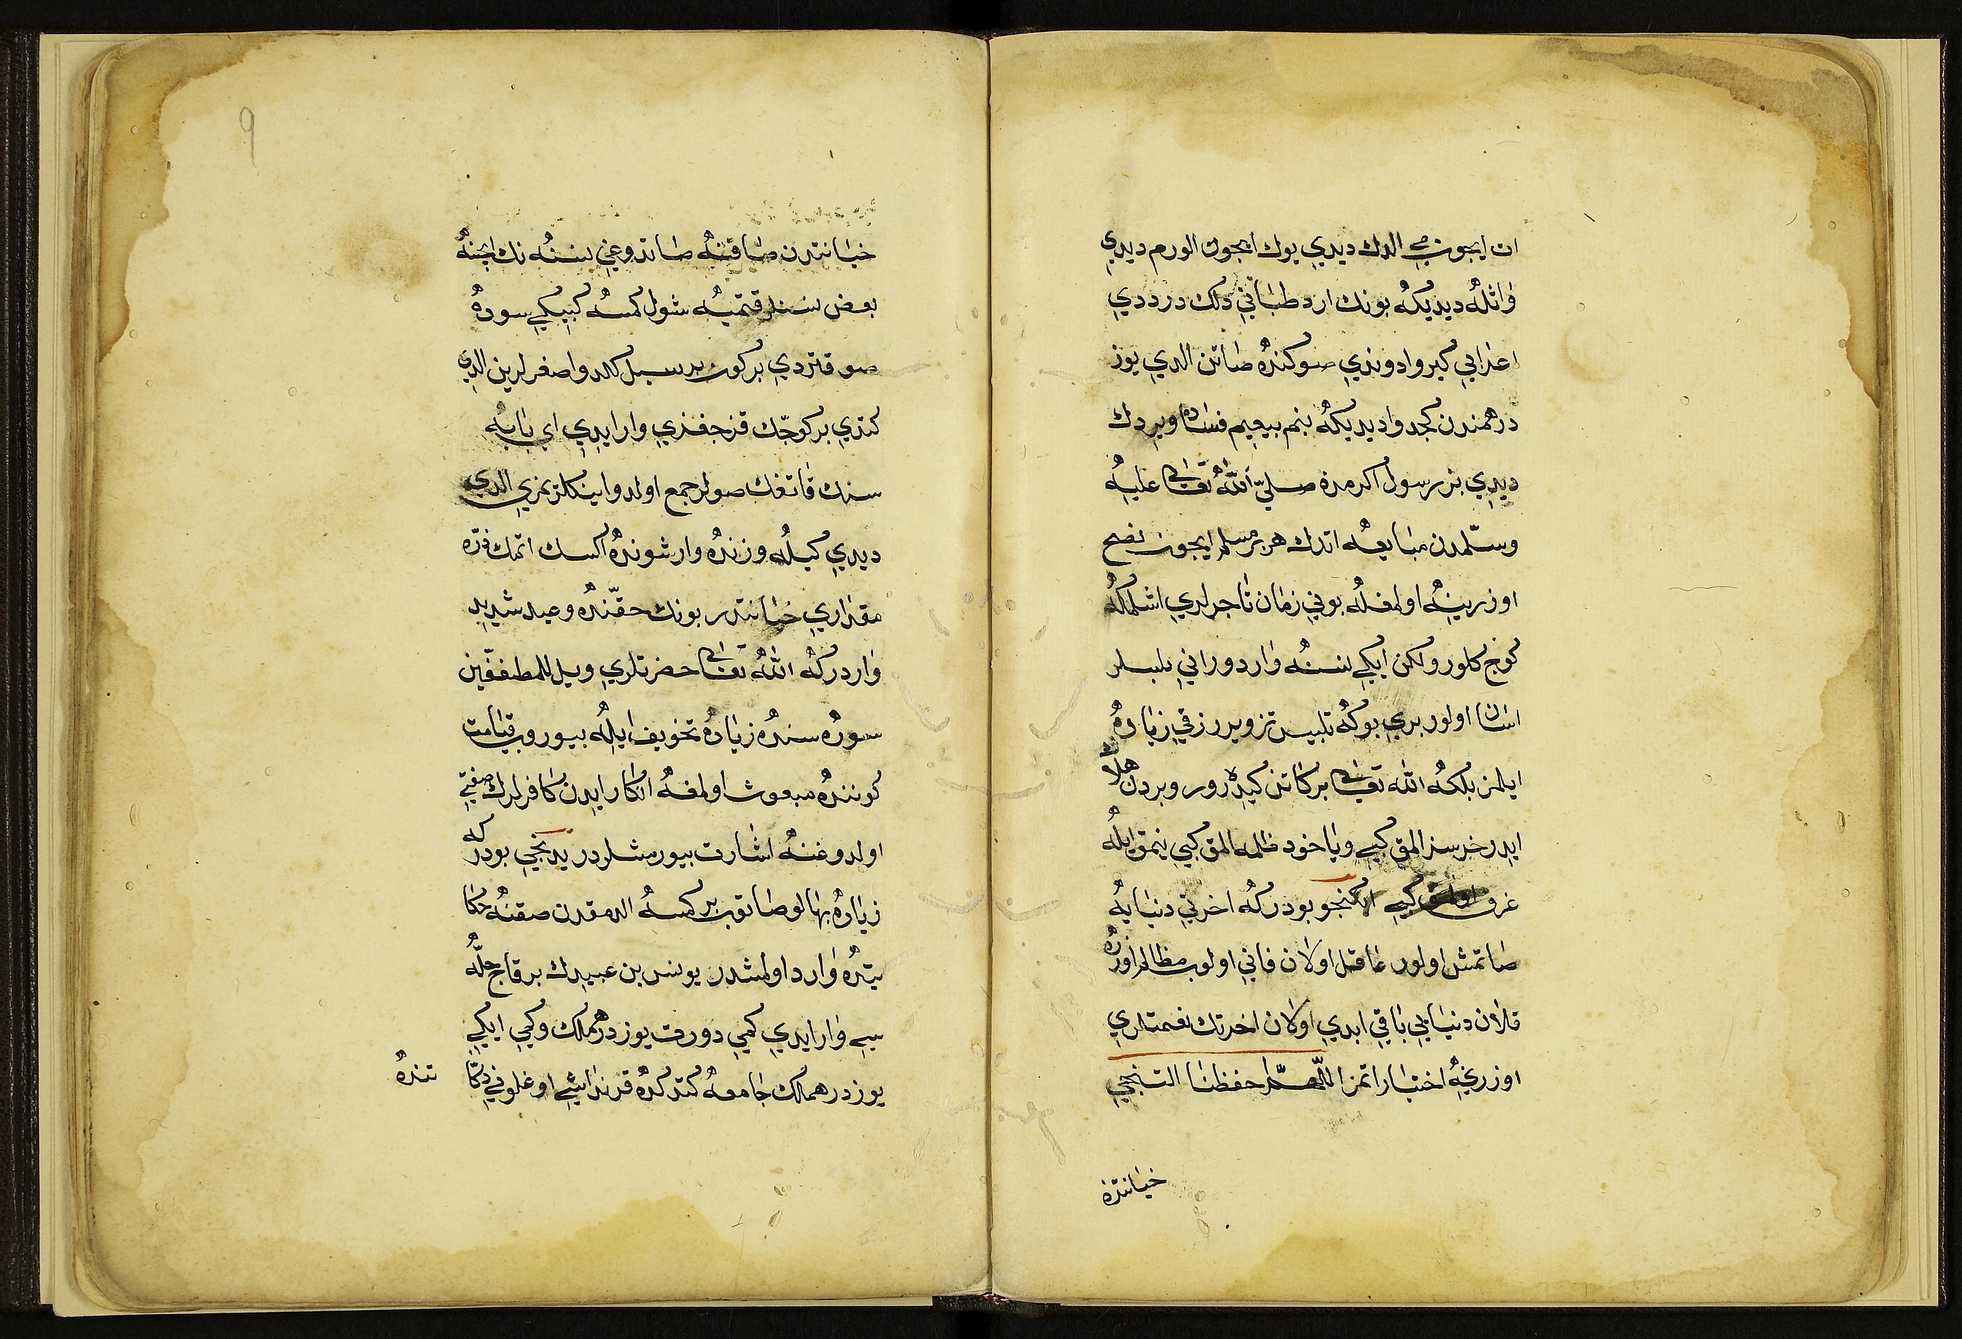 ات ايچون مي الدك ديدي يوك ايچون الورم ديدي
واثله ديديكه بونك ارد طباني دلك درددي
اعرابي كيرو دوندي صوكنده صاتن الدي يوز
درهمندن كچدوا ديديكه بنم بيعيم فساده ويردك
ديدي بز رسول اكرمدن صلي الله تعالى عليه
وسلمدن مبايعه اتدك هر بر مسلم ايچون نصح
اوزرينه اولمغله بوني زمان تاجرلري اشلمكه
كوج كلور ولكن ايكي نسنه واردوراني بلسلر
اسان اولور بري بوكه تلبيس تزوير رزقي زياده
ايلمز بلكه الله تعالى بركاتن كيدرور وبردن هلاك
ايدر خرسز المق كبي ويا خود ظلمه المق كبي ينمق ايله
غرق اولمق كبي ايكنجو بودركه اخرتي دنيايه
صاتمش اولور عاقل اولان فاني اولوب مظالم اوزره
قلان دنيايي باقي ابدي اولان اخرتك نعمتلري
اوزرينه اختيار اتمز اللهم احفظنا التنجي
خيانتدن
٩
خيانتدن صاقنه صاتدوغي نسنه نك ايچنه
بعض نسنه قتميه شول كمسه كبيكي سوده
صو قتردي بر كون بر سيل كلدو اصغرلرين الدي
كتدي بر كوچك قز جغزي وار ايدي اي بابه
سنك قاتغك صولر جمع اولدو اينكلريمزي الدي
ديدي كيله وزنده وار شونده اكسك اتمك ذره
مقداري خيانتدر بونك حقنده وعيد شديد
واردركه الله تعالى حضرتلري ويل للمطففين
سوره سنده زياده تخويف ايله بيوروب قيامت
كوننده مبعوث اولمغه انكار ايدن كافرلرك صفتي
اولدوغنه اشارت بيورمشلردر يدنجي بودركه
زياده بهالو صاتوب بر كمسه الدمقدن صقنه حكا
يتده وارد اولمشدر يونس بن عبيدك بر قاچ حله
سي وار ايدي كمي دورت يوز درهملك وكمي ايكي
يوز درهملك جامعه كتدكده قرنداشي اوغلوني دكا
تنده